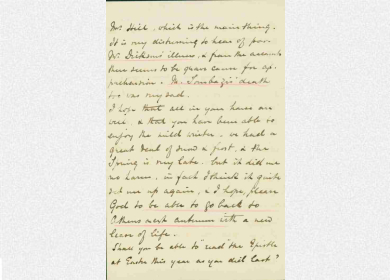 Mrs Hill, which is the main thing.
It is very distressing to hear of poor
Mr Dickson's illness, & from the accounts
there seems to be grave cause for ap-
prehension. Mr. death
too was very sad.
I hope that all in your house are
well, & that you have been able to
enjoy the mild winter. we had a
great deal of snow & frost, & the
Spring is very late. but it did me
no harm, in fact I think it quite
set me up again, & I hope please
God to be able to go back to
Athens next autumn with a new
lease of life.
Shall you be able to read the Epistle
at Easter this year as you did last?